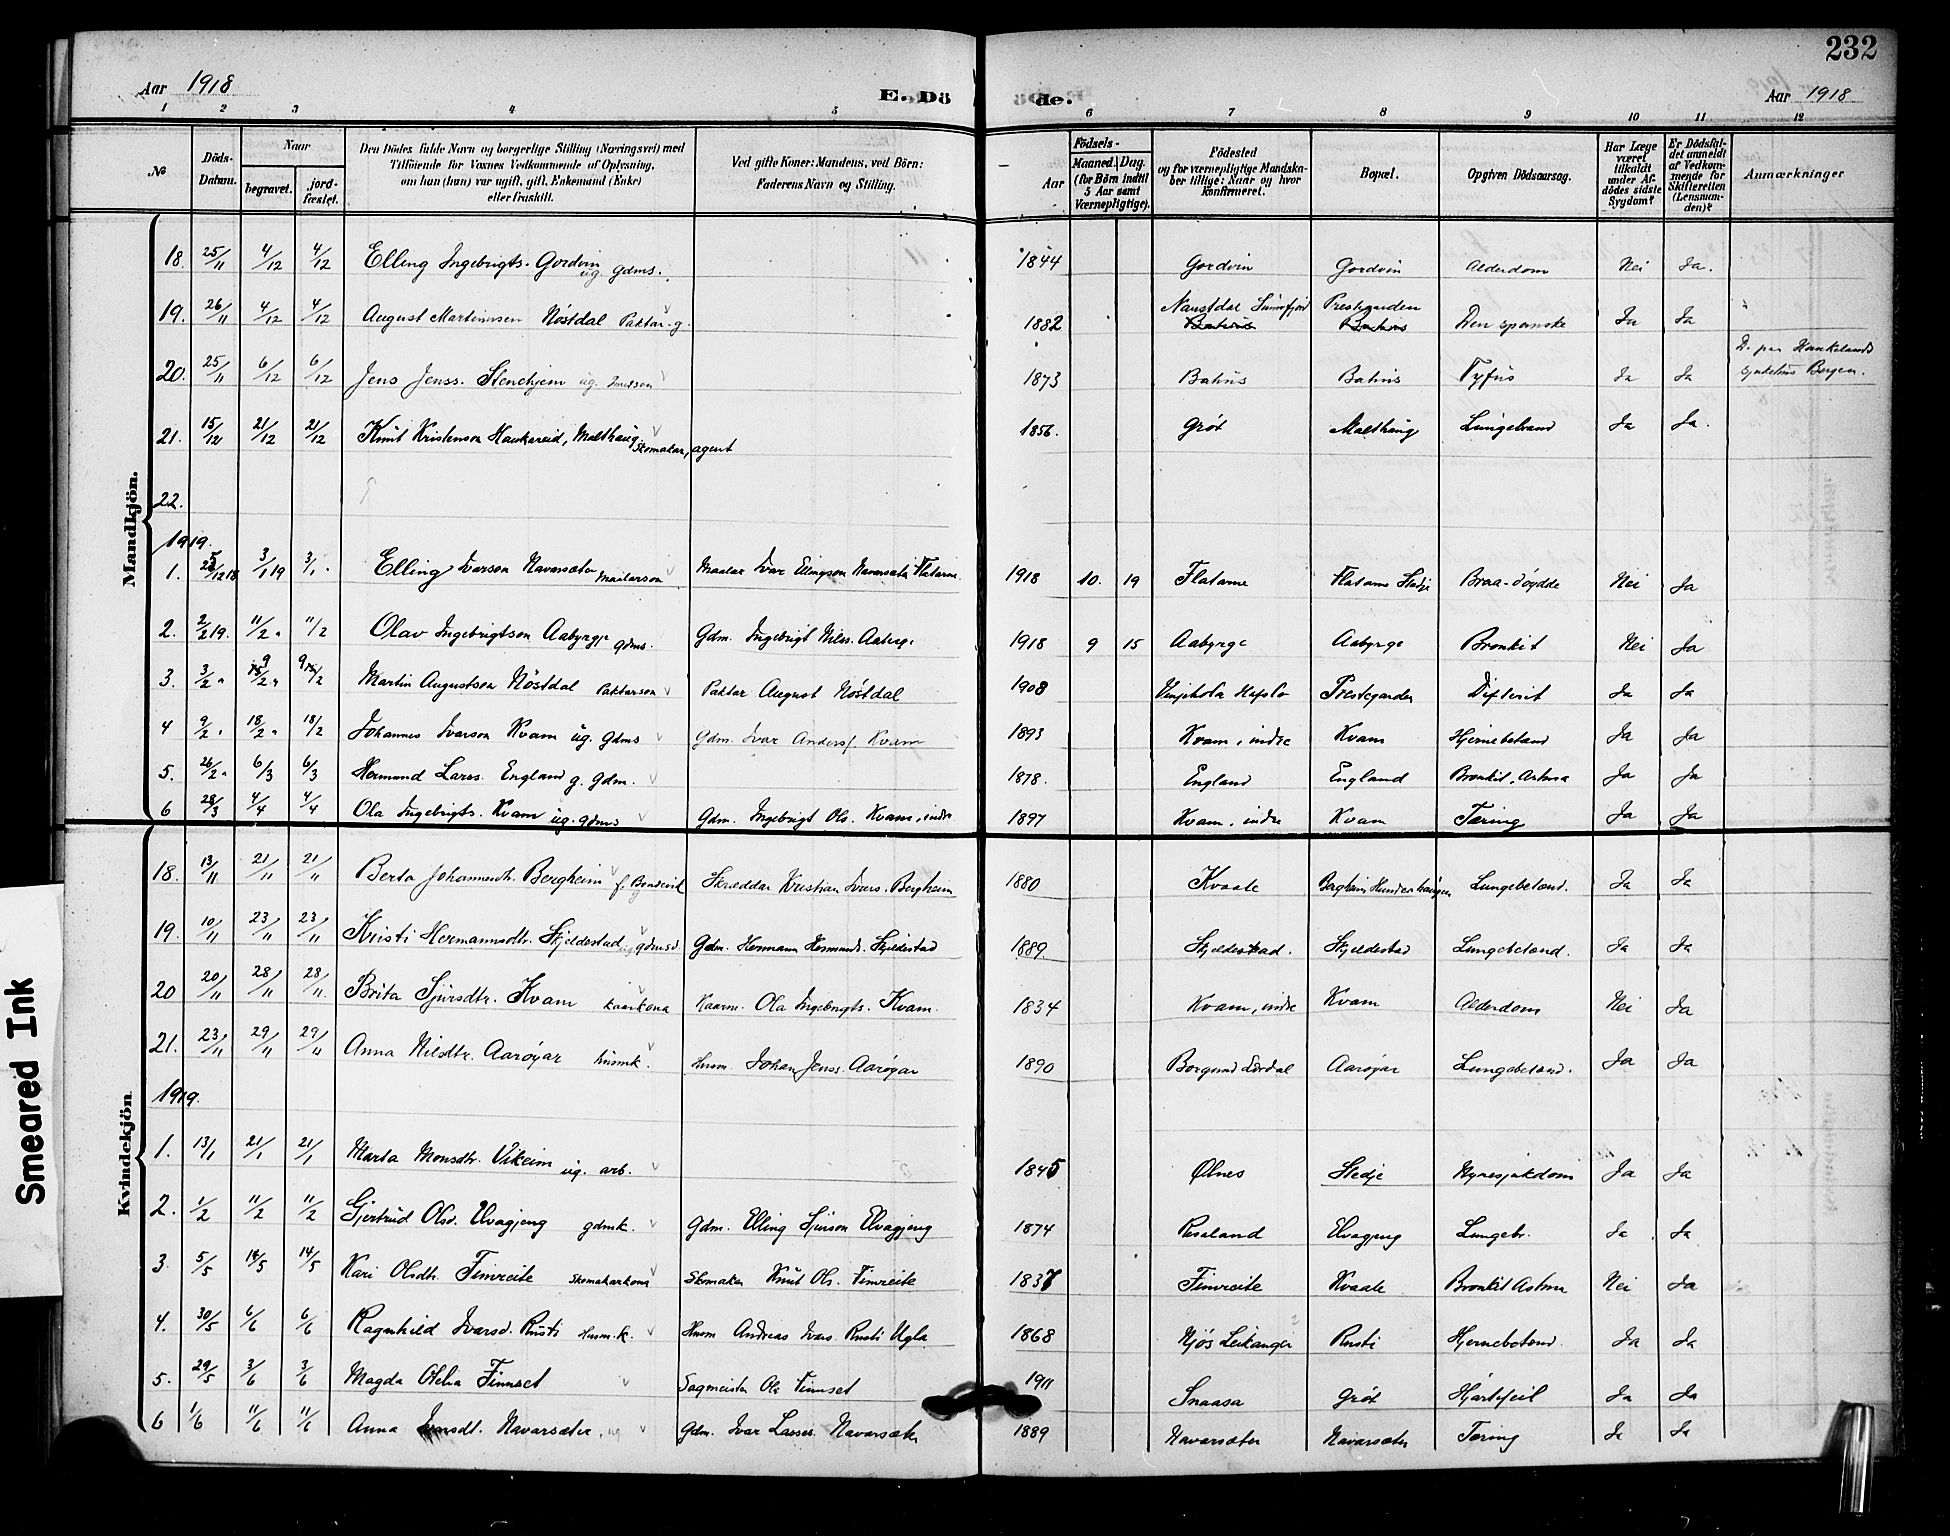 232
Aar 1918
E. Döde.
Aar 1918
1 2 3 4 5 6 7 8 9 10 11 12
No
Döds-Datum.
Naar
begravet.
jord-fæstet.
Den Dödes fulde Navn og borgerlige Stilling (Næringsvei) med
Tilföiende for Voxnes Vedkommende af Oplysning,
om han (hun) var ugift, gift, Enkemand (Enke)
eller fraskilt.
Ved gifte Koner: Mandens, ved Börn:
Faderens Navn og Stilling.
Födsels-
Aar
Maaned. Dag.
(for Börn indtil
5 Aar samt
Værnepligtige).
Födested
og for værnepligtige Mandska-
ber tillige: Naar og hvor
konfirmeret.
Bopæl.
Opgiven Dödsaarsag.
Har Læge
været
tilkaldt
under Af-
dödes sidste
Sygdom?
Er Dödsfal-
det anmeldt
af Vedkom-
mende for
Skifteretten
(Lensman-
den)?
Anmærkninger
Mandkjön.
18. 25/11 4/12 4/12 Elling Ingebrigts. Gordvin ug. gdms. 1844 Gordvin Gordvin Alderdom Nei Ja.
19. 26/11 4/12 4/12 August Martinusen Nöstdal Paktar g. 1882 Naustdal Sunnfjord Prestegarden Den spanske Ja Ja
20. 25/11 6/12 6/12 Jens Jenss. Stenehjem ug. 1873 Bahus Bahus Tyfus Ja Ja D. paa Haukelands sjukehus Bergen.
21. 15/12 21/12 21/12 Knut Kristenson Haukareid, Malthaug Skomakar, agent 1856. Gröt Malthaug Lungebrand Ja Ja.
22.
1919.
1. 25/12 18 3/1 19 3/1 Elling Ivarson Navarsæter Maalarson Maalar Ivar Ellingson Navarsæte Flatane 1918 10. 19 Flatane Flatane Stedje Braa-döydde Nei Ja
2. 2/2 19. 11/2 11/2 Olav Ingebrigtson Aabyrge gdms. Gdm. Ingebrigt Nilss. Aaberge 1918 9 15 Aabyrge Aabyrge Bronkit Nei Ja
3. 3/2 9 15/2 9 15/2 Martin Augustson Nöstdal Paktarson Paktar August Nöstdal 1908 Hafslo Prestegarden Difterit Ja Ja
4 9/2 18/2 18/2 Johannes Ivarson Kvam ug. gdms Gdm. Ivar Anders. Kvam 1893 Kvam, indre Kvam Hjernebetend Ja Ja
5. 26/2 6/3 6/3 Hermund Larss. England g. gdm. 1878. England England Bronkit, Astma Ja Ja
6 28/3 4/4 4/4 Ola Ingebrigts. Kvam ug. gdms Gdm. Ingebrigt Ols. Kvam, indre 1897 Kvam, indre Kvam Tæring Ja Ja
Kvindekjön
18. 13/11 21/11 21/11 Berta Johannesdtr. Bergheim f. Bondevik Skræddar Kristian Ivars. Bergheim 1880 Kvaale Bergheim Hunderhaugen Lungebetend. Ja Ja
19. 10/11 23/11 23/11 Kristi Hermannsdtr. Skjeldestad ug gdmsd Gdm. Hermann Hermunds. Skjeldestad 1889 Skjeldestad. Skjeldestad Lungebetend. Ja Ja
20 20/11 28/11 28/11 Brita Sjursdtr. Kvam kaarkona Kaarm. Ola Ingebrigts. Kvam. 1834 Kvam, indre Kvam Alderdom Nei Ja
21. 23/11 29/11 29/11 Anna Nilsdtr. Aaröyar husmk. Husm. Johan Jenss. Aaröyar 1890 Borgund Lærdal Aaröyar Lungebetend. Ja Ja
1919.
1. 13/1 21/1 21/1 Marta Monsdtr. Vikeim ug. arb. 1845 Ölnes Stedje Nyresjukdom Ja Ja
2. 1/2 11/2 11/2 Gjertrud Olsd. Elvagjeng gdmk. Gdm. Elling Sjurson Elvagjeng 1874 Rusaland Elvagjeng Lungebr. Ja Ja
3. 5/5 14/5 14/5 Kari Olsdtr. Timreite Skomakarkona Skomaker Knut Ols. Timreite 1837 Timreite Kvaale Bronkit Astma Nei Ja
4. 30/5 6/6 6/6 Ragnhild Ivarsd. Rusti Husm.k. Husm Andreas Ivars. Rusti Ugla 1868 Njös Leikanger Rusti Hjernebetend. Ja Ja
5. 29/5 3/6 3/6 Magda Otelia Finnset Sagmeister Ola Finnset 1911 Snaasa Gröt Hjartefeil Ja Ja
6 1/6 11/6 11/6 Anna Ivarsdt. Navarsæter ug Gdm. Ivar Lasses. Navarsæter 1889 Navarsæter Navarsæter Tæring Ja Ja
Smeared Ink